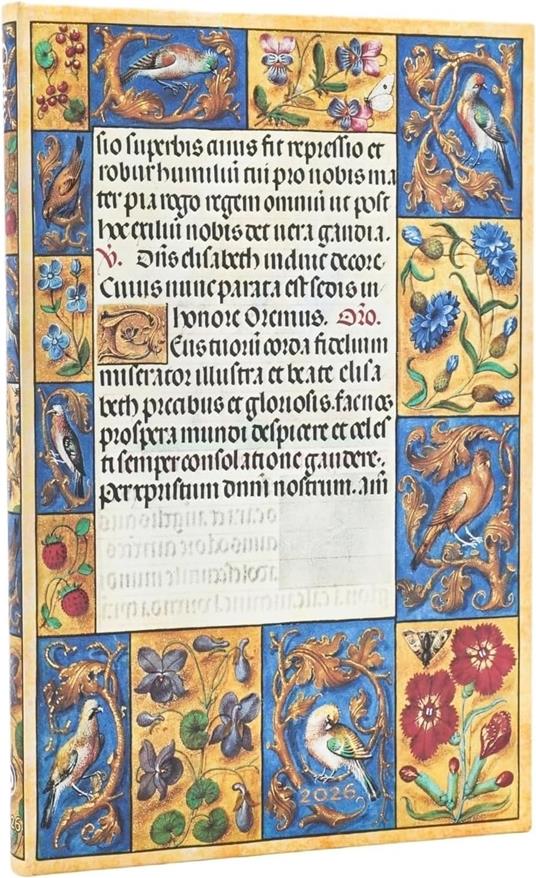 sio superbis cuius fit repressio et
robur humiliū tui pro nobis ma
ter pia rogo regem omniū ut post
hec exiliū nobis det uera gaudia.
V. Dn̄s elisabeth induic decore
Cuius nunc parata est sedis in
honore Oremus. Oro.
Deus tuorū corda fidelium
miserator illustra et beate elisa
beth precibus et gloriosis. fac nos
prospera mundi despicere et celes
ti semper consolatione gaudere.
Per xpristum dnm̄ nostrum. am̄
2026
26